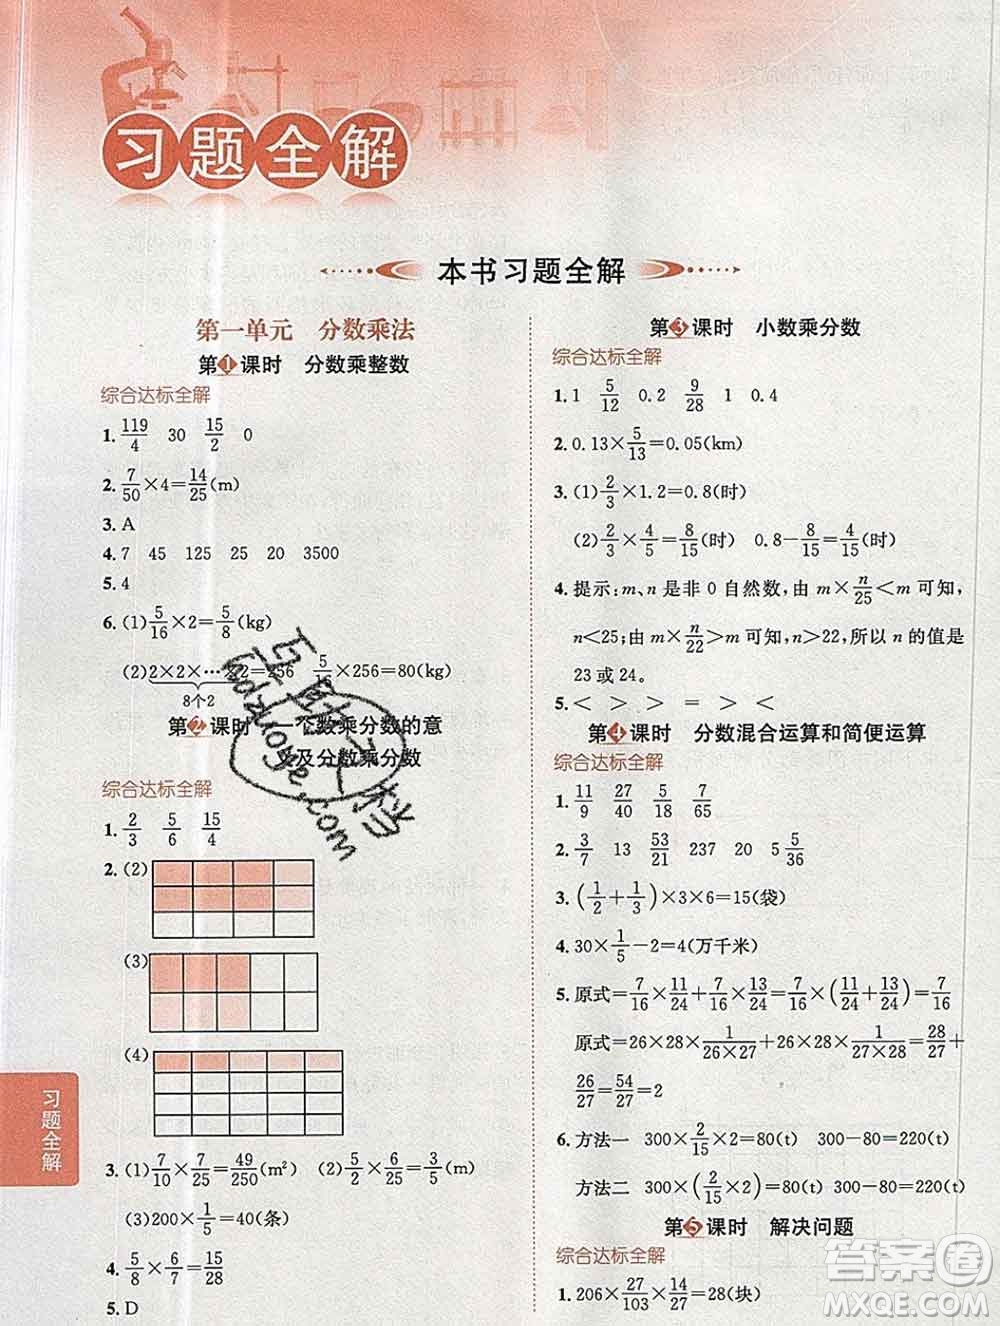 习题全解
本书习题全解
第一单元 分数乘法
第1课时 分数乘整数
综合达标全解
1. 119/4 30 15/2 0
2. 7/50×4=14/25(m)
3. A
4. 7 45 125 25 20 3500
5. 4
6. (1) 5/16×2=5/8(kg)
(2) 2×2×…×2=256 5/16×256=80(kg)
8个2
第2课时 一个数乘分数的意
及分数乘分数
综合达标全解
1. 2/3 5/6 15/4
2. (2)
(3)
(4)
3. (1) 7/10×7/25=49/250(m²) (2) 5/2×6/25=3/5(m)
(3) 200×1/5=40(条)
4. 5/8×6/7=15/28
5. D
第3课时 小数乘分数
综合达标全解
1. 1 5/12 0.2 9/28 1 0.4
2. 0.13×5/13=0.05(km)
3. (1) 2/3×1.2=0.8(时)
(2) 2/3×4/5=8/15(时) 0.8-8/15=4/15(时)
4. 提示:m、n是非0自然数,由m×n/25<m可知,
n<25;由m×n/22>m可知,n>22,所以n的值是
23或24。
5. < > > = > <
第4课时 分数混合运算和简便运算
综合达标全解
1. 11/9 27/40 5/18 7/65
2. 3/7 13 53/21 237 20 5 5/36
3. (1/2+1/3)×3×6=15(袋)
4. 30×1/5-2=4(万千米)
5. 原式=7/16×11/24+7/16×13/24=7/16×(11/24+13/24)=7/16
原式=26×28×1/(26×27)+26×28×1/(27×28)=28/27+
26/27=54/27=2
6. 方法一 300×2/15×2=80(t) 300-80=220(t)
方法二 300×(2/15×2)=80(t) 300-80=220(t)
第5课时 解决问题
综合达标全解
1. 206×27/103×14/27=28(块)
习题全解
答案圈
MXQE.COM